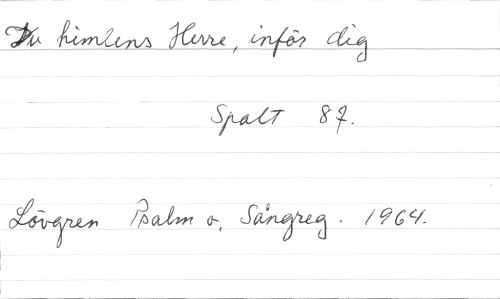 Du himlens Herre, inför dig
Spalt 87.
Lövgren Psalm o. Sångreg. 1964.